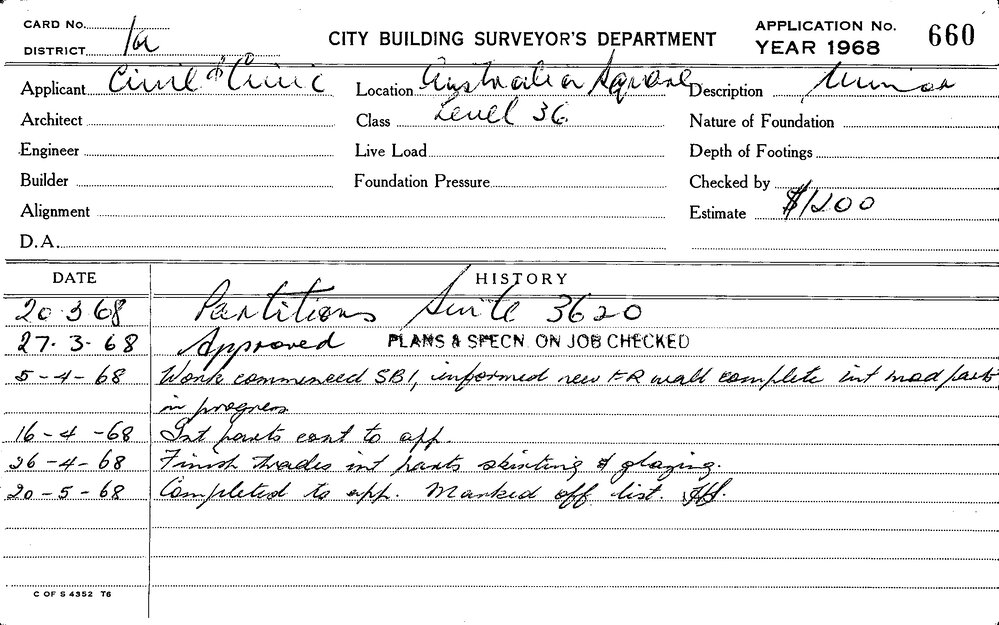 CARD No.
DISTRICT 1a
CITY BUILDING SURVEYOR'S DEPARTMENT
APPLICATION No. 660
YEAR 1968
Applicant Civil & Civic Location Australia Square Description Minor
Architect Class Level 36. Nature of Foundation
Engineer Live Load Depth of Footings
Builder Foundation Pressure Checked by
Alignment Estimate $1200
D.A.
DATE HISTORY
20.3.68 Partitions Suite 3620
27.3.68 Approved PLANS & SPECN. ON JOB CHECKED
5-4-68 Work commenced SB1, informed new FR wall complete int mod parts
in progress
16-4-68 Int parts cont to app.
26-4-68 Finish trades int parts skirting & glazing.
20-5-68 Completed to app. Marked off list.
C OF S 4352 T6